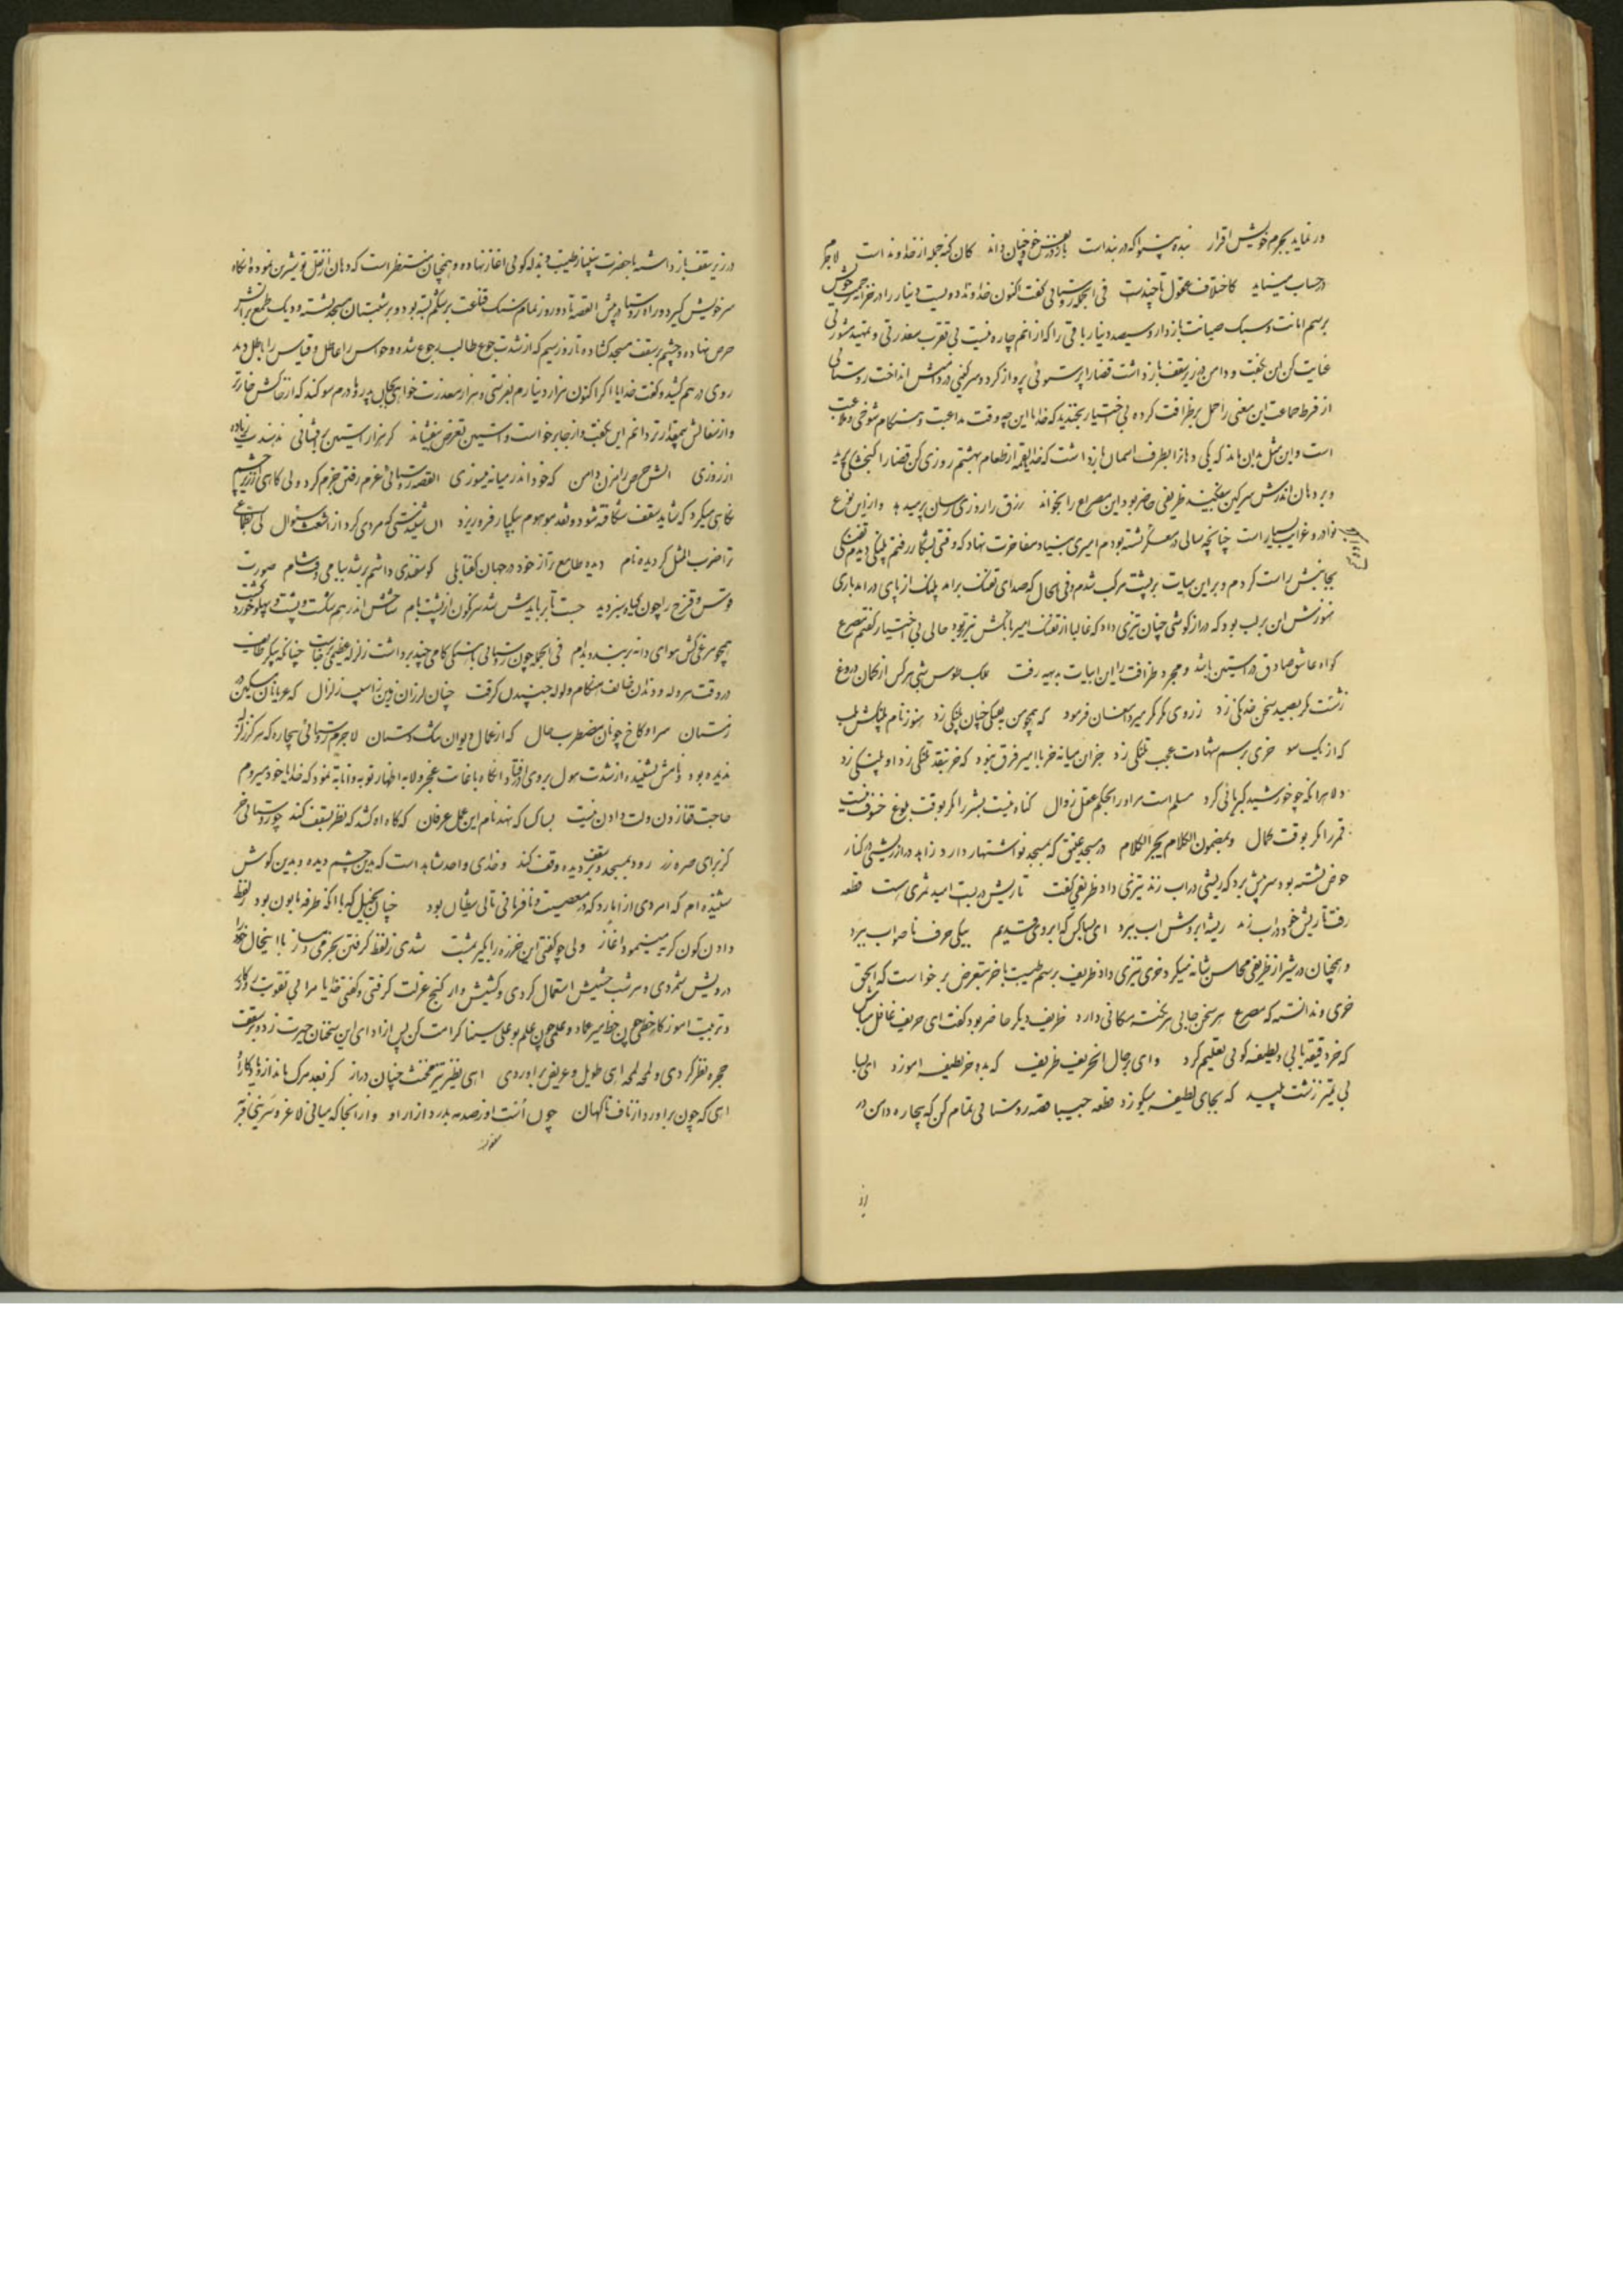 در نماید بجرم خویش اقرار بنده پنداشت که در بند است باز در خود چنان داند کان گنه جمله از خداوند است لاجرم
در حساب مینماید کاختلاف عقول تا چندست فی الجمله روستائی گفت اکنون خداوندا دویست دینار را در خزانه خویش
برسم امانت و سبک صیانت بازدار و سیصد دینار باقی را که از آنم چاره نیست بی تقرب معذرتی و تمهید مشورتی
عنایت کن این بگفت و دامن در زیر سقف بازداشت قضا را پرستوئی پرواز کرد و سرگینی در دامنش انداخت روستائی
از فرط حماقت این معنی را حمل بر ظرافت کرده بی اختیار بخندید که خدایا این چه وقت مداعبت و هنگام شوخی و ملاعبت
است و این مثل بدان ماند که یکی دهان را بطرف آسمان بازداشت که خدایا لقمه از طعام بهشتم روزی کن قضا را گنجشکی
در دهان اندرش سرگین بیفکند ظریفی حاضر بود این مصرع را بخواند رزق را روزی رسان پر میدهد و از این نوع
نوادر و غرایب بسیار است چنانچه سالی در معسکر نشسته بودم امیری بنیاد مفاخرت نهاد که وقتی بشکار رفتم پلنگی دیدم تفنگی
بجانبش راست کردم و بر این هیأت بر پشت مرکب شدم و فی الحال که صدای تفنگ برآمد پلنگ از پای درآمد باری
هنوزش این بر لب بود که درازگوشی چنان تیزی داد که غالبا از تفنگ امیر بانگش تیزتر بود حالی بی اختیار گفتم مصرع
گواه عاشق صادق در آستین باشد و بمجرد ظرافت این ابیات بدیهه رفت ملک طوس شبی هرکس از کمان دروغ
زشت گر بصید سخن خدنگی زد ز روی مکر میر افغان فرمود که همچو من بصیدی چنان پلنگی زد هنوز نام پلنگش بلب
که از یک سو خری برسم شهادت عجب تفنگی زد جز آن میانه خر با امیر فرق نبود که خر تفنگی زد او پلنگی زد
دلا هرانکه چو خورشید کبریائی کرد مسلم است مر او را بحکم عقل زوال گناه نیست بشر را گر بوقت بلوغ خسوف نیست
قمر را مگر بوقت کمال و بمضمون الکلام یجر الکلام در مسجد عتیق که بمسجد نو اشتهار دارد زاهد درازریشی در کنار
حوض نشسته بود سر پیش برد که ریشی در آب زند تیزی داد ظریفی گفت تا ریش در بست امید ثمری هست قطعه
رفت تا ریش خود در آب زند ریشه آبروش آب ببرد ای بسا کس که آبروی قدیم بیکی حرف ناصواب ببرد
و همچنان در شیراز ظریفی محاسن شانه میکرد خری تیزی داد ظریف برسم طیبت با خر بتعرض برخواست که الحق
خری و ندانسته که مصرع هر سخن جایی و هر نکته مکانی دارد ظریف دیگر حاضر بود گفت ای حریف غافل مباش
که خر دقیقه یابی و لطیفه گوئی تعلیم کرد وای بر حال آن حریف ظریف که بدو خر لطیفه آموزد ای بسا
بی تمیز زشت پلید که بجای لطیفه نیکو زد قطعه حبیبا قصه روستائی تمام کن که بیچاره دامن در
از
در زیر سقف بازداشته با حضرت بینیاز طیبت و بذله گوئی آغاز نهاده و همچنان منتظر است که دهان از نقل تو شیرین نموده آنگاه
سر خویش گیرد و راه روستا در پیش القصه تا دو روز تمام سنگ قناعت بر شکم بسته بود و بر شبستان مسجد نشسته و دیگ طمع بر آتش
حرص نهاده و چشم بر سقف مسجد گشاده تا روز سیم که از شدت جوع طالب رجوع شده و حواس را عاطل و قیاس را باطل دید
روی درهم کشید و گفت خدایا اگر اکنون هزار دینارم بفرستی و هزار معذرت خواهی
و از سفالش بیمقدارتر دانم این بگفت و از جا برخواست و آستین تعرض بیفشاند گر هزار آستین برفشانی ندهندت زیاده
از روزی آتش حرص را مزن دامن که خود اندر میانه میسوزی القصه روستائی عزم رفتن جزم کرد ولی گاهی از زیر چشم
نگاهی میکرد که شاید سقف شکافته شود و نقد موهوم بیکبار فرو ریزد آن شنیدستی که مردی کرد از اشعث سؤال کی بطماعی
ترا ضرب المثل گردیده نام دیده طامع تر از خود در جهان گفتا بلی گوسفندی داشتم بر شد ببامی وقت شام صورت
قوس و قزح را چون گیاه سبز دید جست تا بربایدش شد سرنگون از پشت بام شاخش اندر هم شکست و پشت و پهلو خورد گشت
همچو مرغی کش هوای دانه بر بندد بدام فی الجمله چون روستائی باهستگی گامی چند برداشت زلزله عظیمی برخاست چنانکه پیکر طاعت
در وقت هروله و دندان خائف هنگام ولوله جنبیدن گرفت چنان لرزان زمین ز آسیب زلزال که عریانان مسکین در
زمستان سرا و کاخ چونان مضطرب حال که از غوغا دیوان شکستان لاجرم روستائی بیچاره که هرگز زلزله
ندیده بود و نامش نشنیده از شدت هول بروی افتاد آنگاه با غایت عجز و لابه اظهار توبه و انابه نمود که خدایا خود میروم
حاجت قفا زدن و لت دادن نیست بسا کسا که نهد نام این عمل عرفان که گاه آه کشد که نظر بسقف کند چو روستائی خر
کز برای صره زر رود بمسجد و بر سقف دیده وقف کند و خدای واحد شاهد است که بدین چشم دیده و بدین گوش
شنیده ام که امردی از امارد که در معصیت و نافرمانی تالی شیطان بود چنان بخیل که با آنکه طرفه مابون بود لفظ
دادن کون کریه مینمود آغاز ولی چو گفتی این خرزه را بگیر بمشت شدی ز لفظ گرفتن بخرمی دمساز با اینحال خود را
درویش شمردی و هر شب حشیش استعمال کردی و کشیش وار کنج عزلت گرفتی و گفتی خدایا مرا بی تقویت روزگار
و تربیت آموزگار خطی چون خط میر عماد و علمی چون علم بوعلی سینا کرامت کن پس از ادای این سخنان حیرت زده بر سقف
حجره نظر کردی و لمحه لمحه آهی طویل و عریض برآوردی آهی نظیر تیز مخنث چنان دراز کز بعد مرگ ماند ازو یادگارها
آهی که چون برآورد از ناف ناگهان چون اشت اوز صدمه بدرد ازار او و از آنجا که میانی لاغر و سرینی فربه